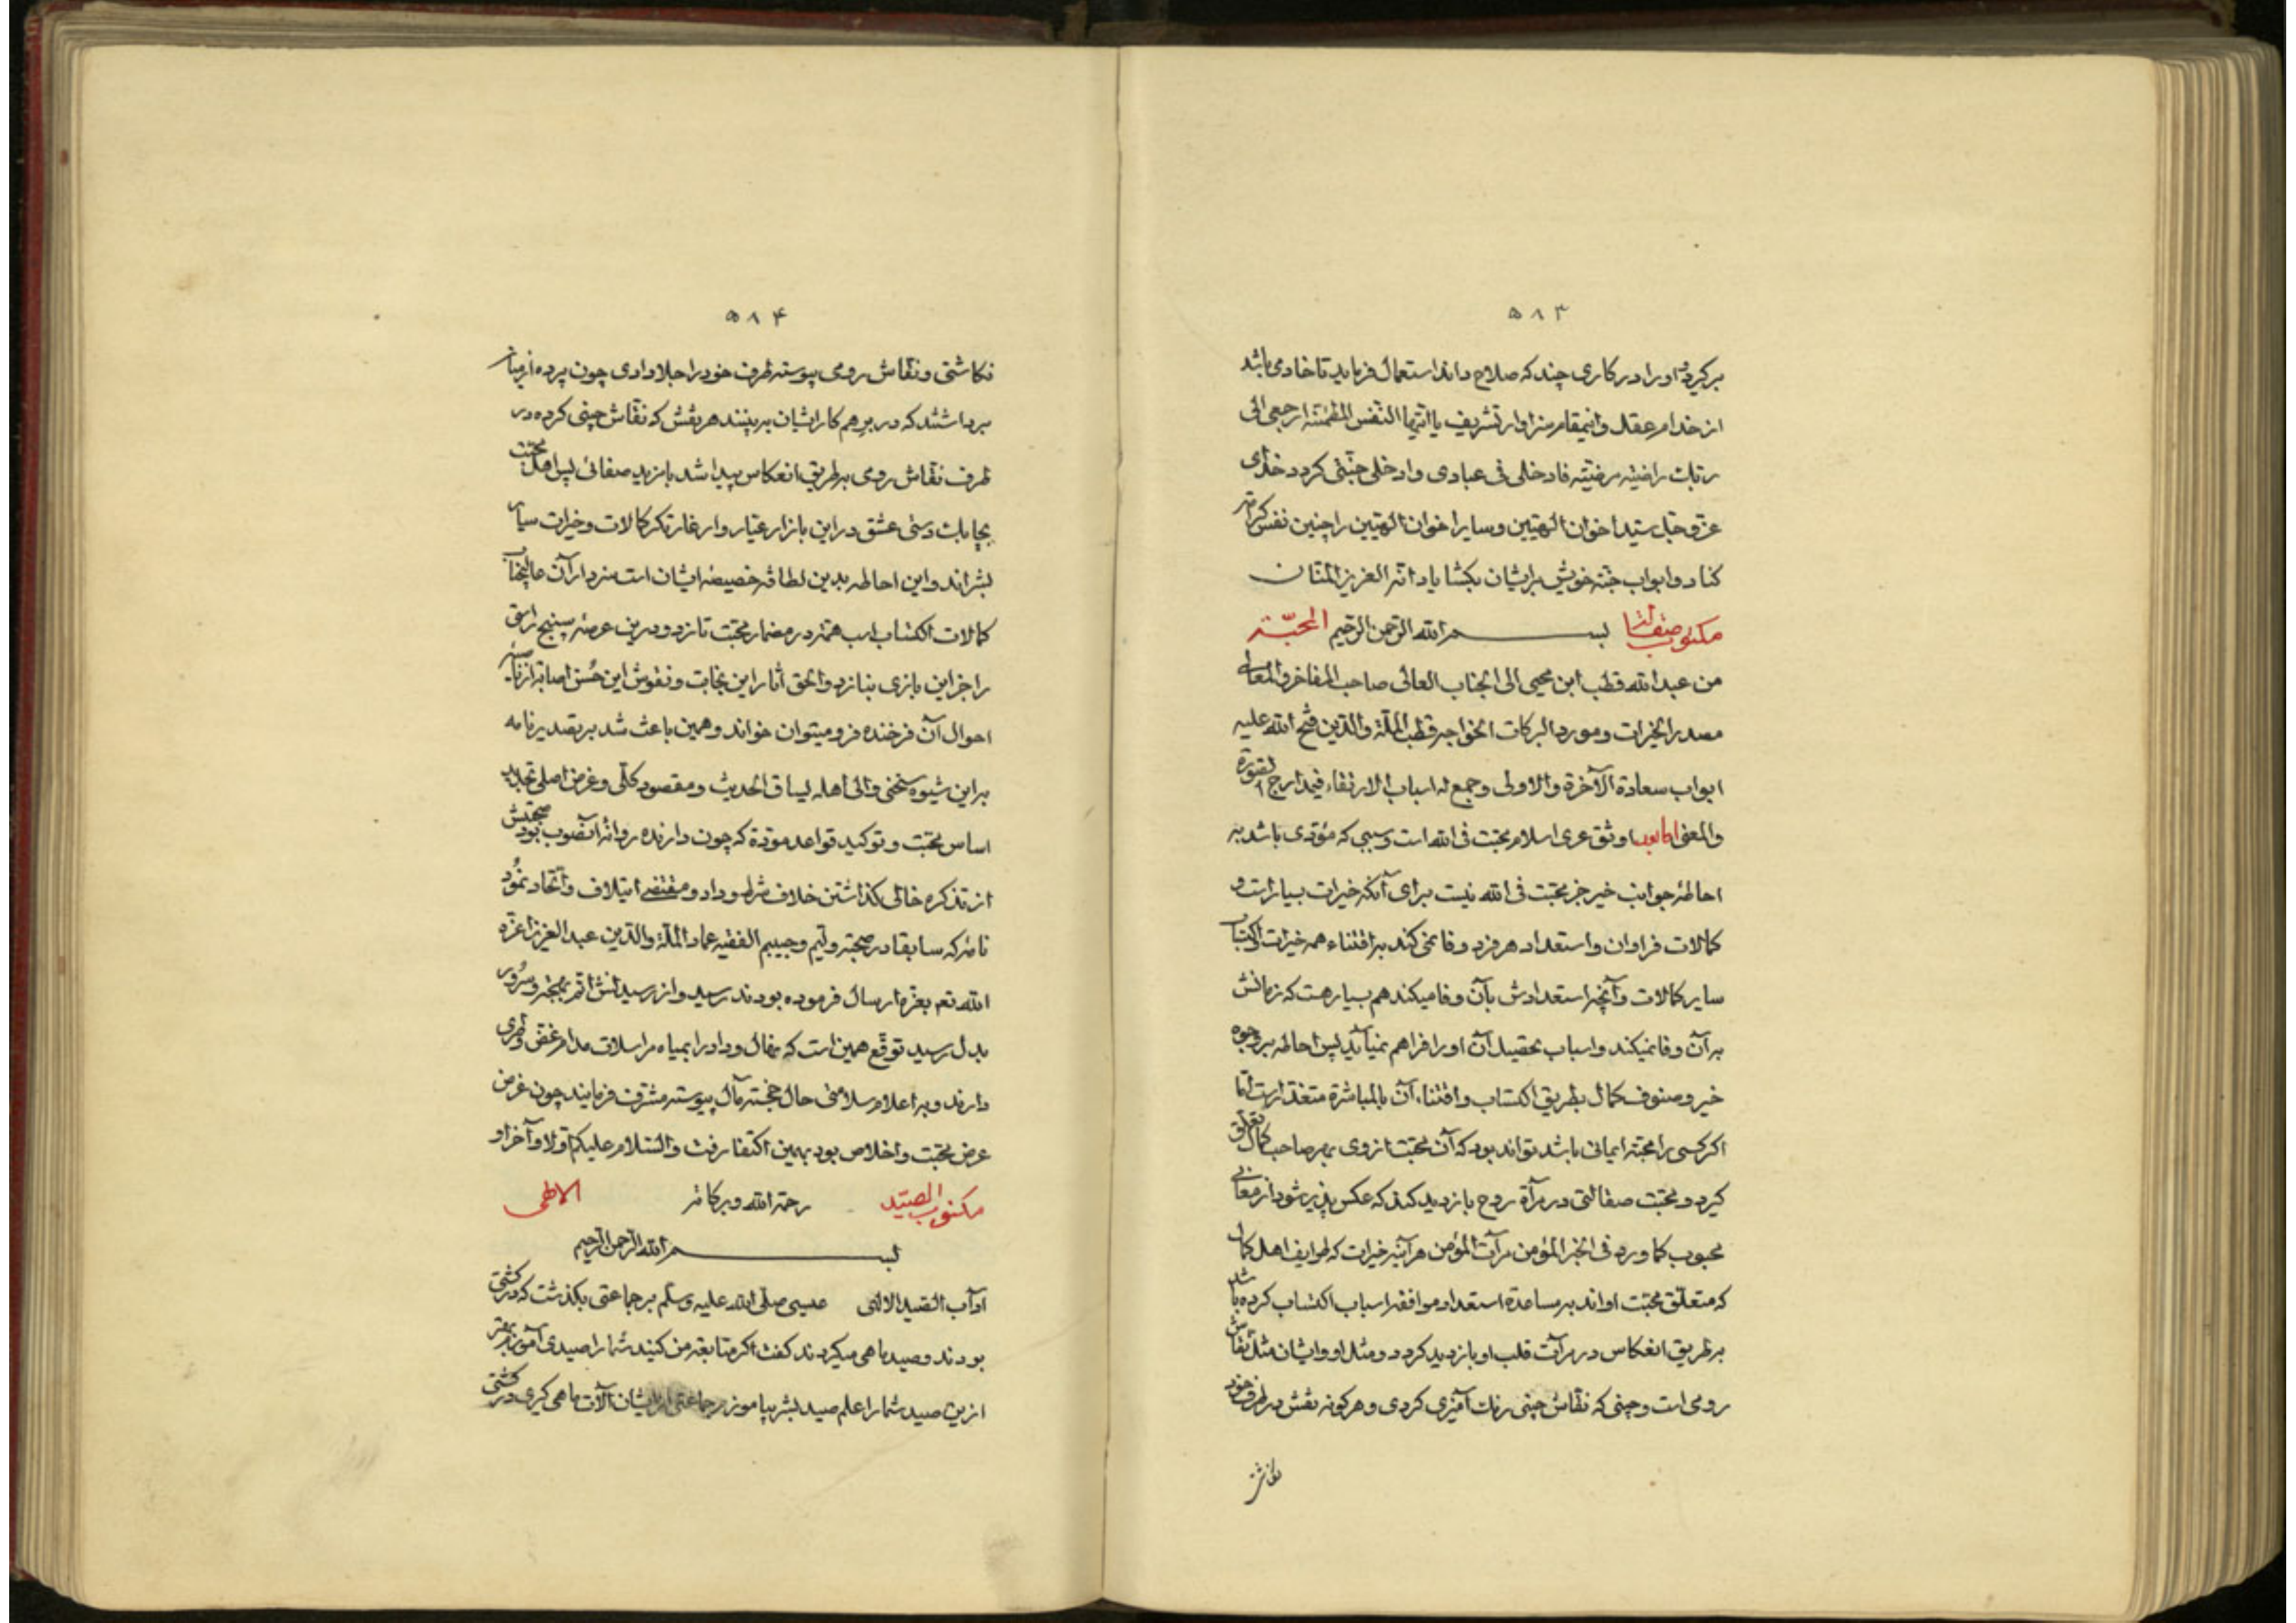 ۵۸۳
برگیرد و او را در کاری چند که صلاح داند استعمال فرماید تا خادمی باشد
از خدام عقل و اینمقام سزاوار تشریف یا ایتها النفس المطمئنه ارجعی الی
ربک راضیه مرضیه فادخلی فی عبادی وادخلی جنتی گردد خدای
عز و جل سید اخوان الهیین و سایر اخوان الهیین را چنین نفس کرامت
کناد و ابواب جنه خویش بر ایشان بکشایاد انه العزیز المنان
مکتوب صفالة بسم الله الرحمن الرحیم المحبّة
من عبد الله قطب ابن محیی الی الجناب العالی صاحب المفاخر والمعالی
مصدر الخیرات و مورد البرکات الخواجه قطب الملة والدین فتح الله علیه
ابواب سعادة الآخرة والاولی و جمع له اسباب الارتقاء فیمدارج الصورة
والمعنی اما بعد اوثق عری اسلام محبت فی الله است و سببی که مؤدی باشد به
احاطۀ جوانب خیر جز محبت فی الله نیست برای آنکه خیرات بسیار است و
کمالات فراوان و استعداد هر فرد وفا نمی کند به اقتناء همه خیرات و اکتساب
سایر کمالات و آنچه استعدادش بآن وفا میکند هم بسیار هست که زمانش
به آن وفا نمیکند و اسباب تحصیل آن او را فراهم نمیآید پس احاطه بر وجوه
خیر و صنوف کمال بطریق اکتساب و اقتناء آن بالمباشرة متعذر است اما
اگر کسی را محبته ایمانی باشد تواند بود که آن محبت از وی بهر صاحب کمال تعلق
گیرد و محبت صفالتی در مرآة روح بازدید کند که عکس پذیر شود از معانی
محبوب کما ورد فی الخبر المؤمن مرآت المؤمن هر آینه خیرات که طوایف اهل کمال
که متعلق محبت اواند به مساعدة استعداد و موافقه اسباب اکتساب کرده باشند
بر طریق انعکاس در مرآت قلب او بازدید گردد و مثل او و ایشان مثل نقاش
رومی است و چینی که نقاش چینی رنگ آمیزی کردی و هر گونه نقش در طرف خود
نکاشتی
۵۸۴
نکاشتی و نقاش رومی پیوسته طرف خود را جلا دادی چون پرده از میان
برداشتند که در برهم کار ایشان به بینند هر نقش که نقاش چینی کرده در
طرف نقاش رومی بر طریق انعکاس پیدا شد با مزید صفائی پس اهل محبت
بچابک دستی عشق در این بازار عیار و ار غارتکر کمالات و خیرات سایر
بشراند و این احاطه بدین لطافه خصیصه ایشان است سزد ار آن عالیجناب
کمالات اکتساب اسب همت در مضمار محبت تازد و درین عرصه سپنج راستی
را جز این بازی نبازد والحق آثار این نجابت و نقوش این حُسن اصابه از ناصیه
احوال آن فرخنده فر و میتوان خواند و همین باعث شد بر تصدیر نامه
بر این شیوه سخنی والی اهله یساق الحدیث و مقصود کلی و غرض اصلی تجدید
اساس محبت و توکید قواعد مودة که چون دارنده روانۀ آنصوب بود صحبتش
از تذکره خالی گذاشتن خلاف شرط وداد و مقتضی ایتلاف و اتحاد نمُود
نامۀ که سابقا در صحبة ولیم و حبیبم الفقیه عماد الملة والدین عبد العزیز اعزه
الله تعم بعزه ارسال فرموده بودند رسید و از رسیدنش اتم بهجة و سرُور
بدل رسید توقع همین است که نهال وداد را بمیاه مراسلات مدام غض و طری
دارند و به اعلام سلامتی حال خجسته مآل پیوسته مشرف فرمایند چون غرض
عرض محبت و اخلاص بود بهمین اکتفا رفت والسلام علیکم اولا و آخرا و
مکتوب الصیّد رحمة الله و برکاته الالهی
بسم الله الرحمن الرحیم
آداب الصید الالهی عیسی صلی الله علیه وسلم بر جماعتی بکذشت که در کشتی
بودند و صید ماهی میکردند گفت اگر متابعة من کنید شما را صیدی آموزم بهتر
ازین صید شما را علم صید بشر بیاموزم جماعتی از ایشان آلات ماهی گیری در کشتی